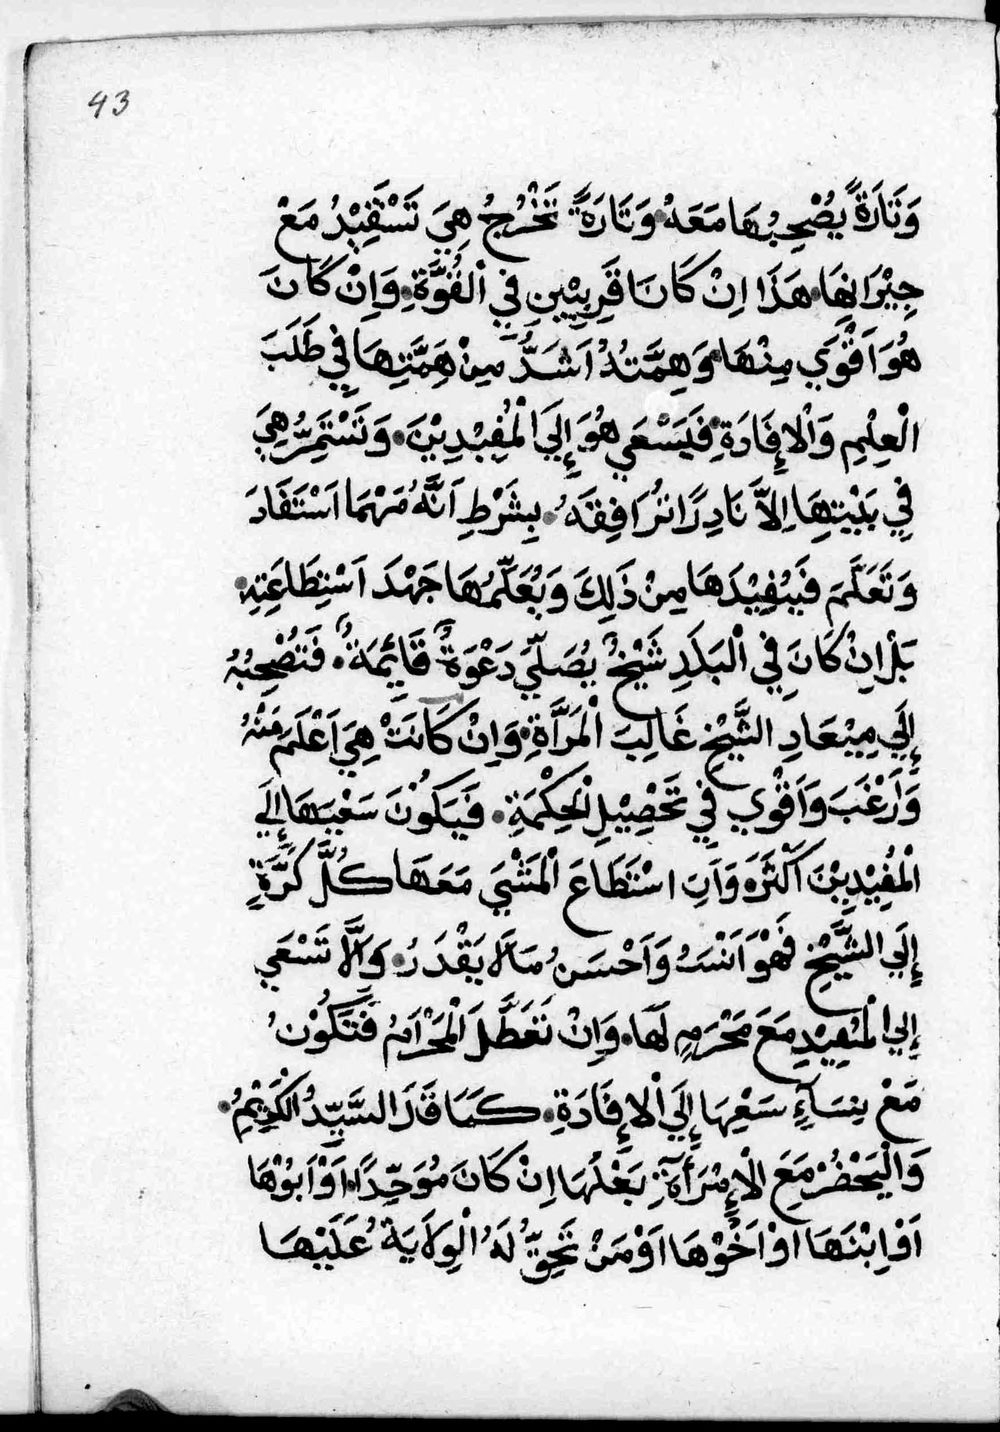 43
وَتَارَةً يُصْحِبُهَا مَعَهُ وَتَارَةً تَخْرُجُ هِيَ تَسْتَفِيْدُ مَعْ
جِيْرَانِهَا. هَذَا اِنْ كَانَا قَرِيبِيْنِ فِي الْقُوَّةِ. وَاِنْ كَانَ
هُوَ اَقْوَي مِنْهَا وَهِمَّتُهُ اَشَدُّ مِنْ هِمَّتِهَا فِي طَلَبَ
الْعِلْمِ وَالْاِفَادَةِ. فَيَسْعَي هُوَ إِلَيَ الْمُفِيْدِيْنَ. وَتَسْتَمِرُّ هِيَ
فِي بَيْتِهَا اِلَّا نَادِرًا تُرَافِقَهُ. بِشَرْطِ اَنَّهُ مَهْمَا اَسْتَفَادَ
وَتَعَلَّمَ فَيُفِيْدَهَا مِنْ ذَلِكَ وَيُعَلِّمُهَا جَهْدَ اَسْتِطَاعَتِهِ.
بَلْ اِنْ كَانَ فِي الْبَلَدِ شَيْخٌ يُصَلِّيَ دَعْوَةٌ قَايِمَةٌ. فَتُصْحِبُهُ
إِلَي مِيْعَادِ الشَّيْخِ غَالِبَ الْمَرَّاةِ. وَاِنْ كَانَتْ هِيَ اَعْلَمَ مِنْهُ
وَاَرْغَبَ وَاَقْوَي فِي تَحْصِيْلِ الْحِكْمَةِ. فَيَكُوْنَ سَعْيَهَا إِلَي
الْمُفِيْدِيْنَ اَكْثَرَهْ وَاَنِ اسْتَطَاعَ الْمَشْيَ مَعَهَا كُلَّ كَرَّةٍ
إِلَي الشَّيْخِ فَهْوَ اَنْسَبُ وَاَحْسَنُ مَا لَا يَقْدَرُ. وَاِلَّا تَسْعَي
إِلي الْمُفِيْدِ مَعَ مَحْرَمٍ لَهَا. وَاِنْ تَعَطَّلَ الْمَحْرَامُ فَتَكُوْنُ
مَعْ نِسَاءٍ سَعْيِهَا إِلَي الْاِفَادَةِ. كَمَا قَالَ السَّيِّدُ الْكَرِيْمُ.
وَالْيَحْضُرْ مَعَ الْاِمْرَأَةِ بَعْلُهَا اِنْ كَانَ مُوَحِّدًا. اَوْ اَبُوْهَا
اَوْ اِبْنَهَا اَوْ اَخُوْهَا اَوْ مَنْ تَحِقُّ لَهُ الْوِلَايَةُ عَلَيْهَا